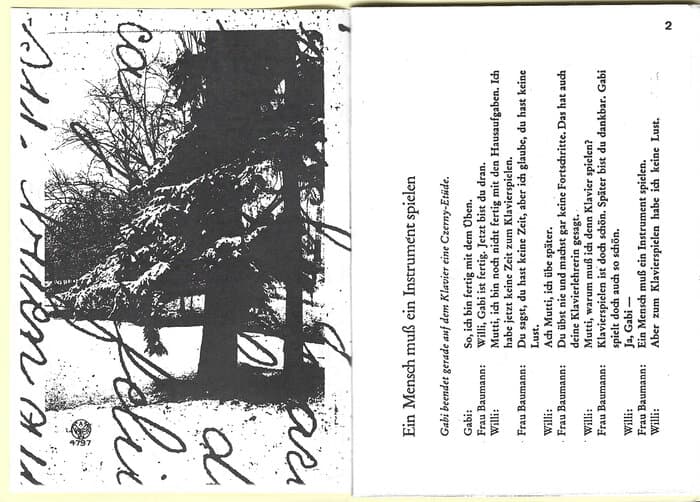 2
Ein Mensch muß ein Instrument spielen
Gabi beendet gerade auf dem Klavier eine Czerny-Etüde.
Gabi: So, ich bin fertig mit dem Üben.
Frau Baumann: Willi, Gabi ist fertig. Jetzt bist du dran.
Willi: Mutti, ich bin noch nicht fertig mit den Hausaufgaben. Ich
habe jetzt keine Zeit zum Klavierspielen.
Frau Baumann: Du sagst, du hast keine Zeit, aber ich glaube, du hast keine
Lust.
Willi: Ach Mutti, ich übe später.
Frau Baumann: Du übst nie und machst gar keine Fortschritte. Das hat auch
deine Klavierlehrerin gesagt.
Willi: Mutti, warum muß ich denn Klavier spielen?
Frau Baumann: Klavierspielen ist doch schön. Später bist du dankbar. Gabi
spielt doch auch so schön.
Willi: Ja, Gabi —
Frau Baumann: Ein Mensch muß ein Instrument spielen.
Willi: Aber zum Klavierspielen habe ich keine Lust.
4797